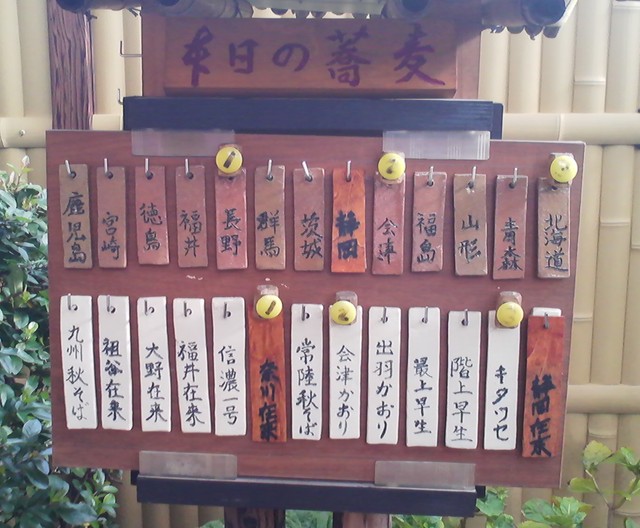 本日の蕎麦
北海道
青森
山形
福島
会津
静岡
茨城
群馬
長野
福井
徳島
宮崎
鹿児島
静岡在来
キタワセ
階上早生
最上早生
出羽かおり
会津かおり
常陸秋そば
奈川在来
信濃一号
福井在来
大野在来
祖谷在来
九州秋そば